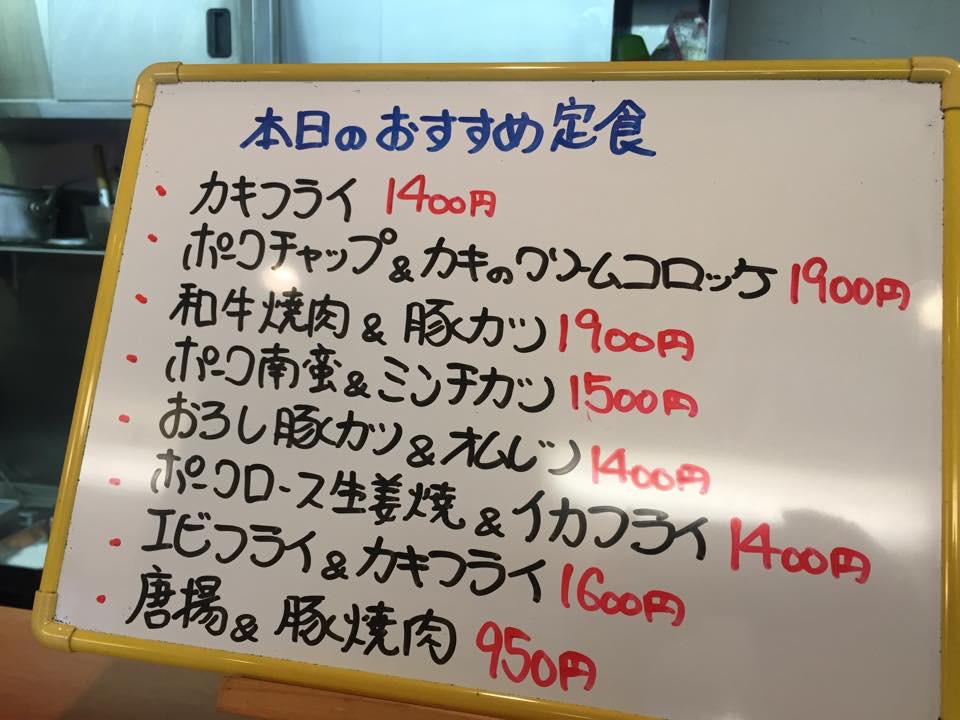 本日のおすすめ定食
・カキフライ 1400円
・ポークチャップ&カキのクリームコロッケ 1900円
・和牛焼肉&豚カツ 1900円
・ポーク南蛮&ミンチカツ 1500円
・おろし豚カツ&オムレツ 1400円
・ポークロース生姜焼&イカフライ 1400円
・エビフライ&カキフライ 1600円
・唐揚&豚焼肉 950円